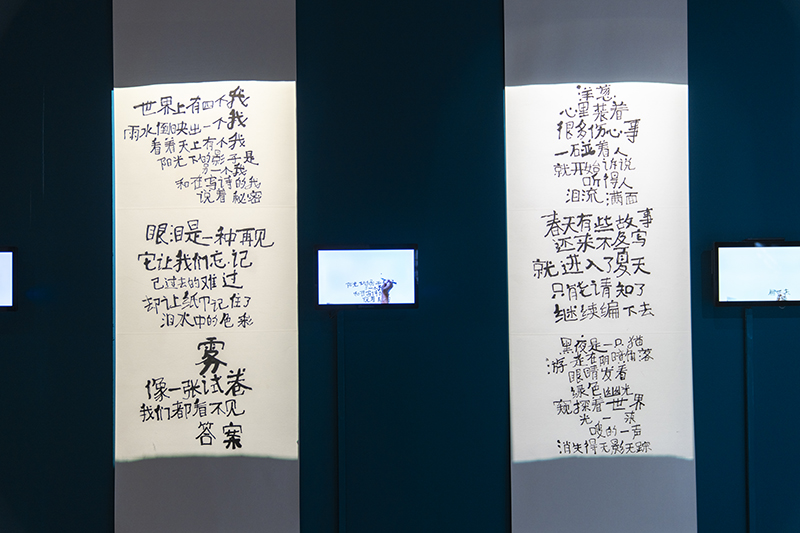 世界上有四个我
雨水倒映出一个我
看着天上有个我
阳光下的影子是
另一个我
和在写诗的我
说着秘密
眼泪是一种再见
它让我们忘记
已过去的难过
却让纸巾记住了
泪水中的色彩
雾
像一张试卷
我们都看不见
答案
洋葱
心里装着
很多伤心事
一碰着人
就开始诉说
听得人
泪流满面
春天有些故事
还来不及写
就进入了夏天
只能请知了
继续编下去
黑夜是一只猫
游走在阴暗角落
眼睛发着
绿色幽光
窥探着世界
光一亮
嗖的一声
消失得无影无踪